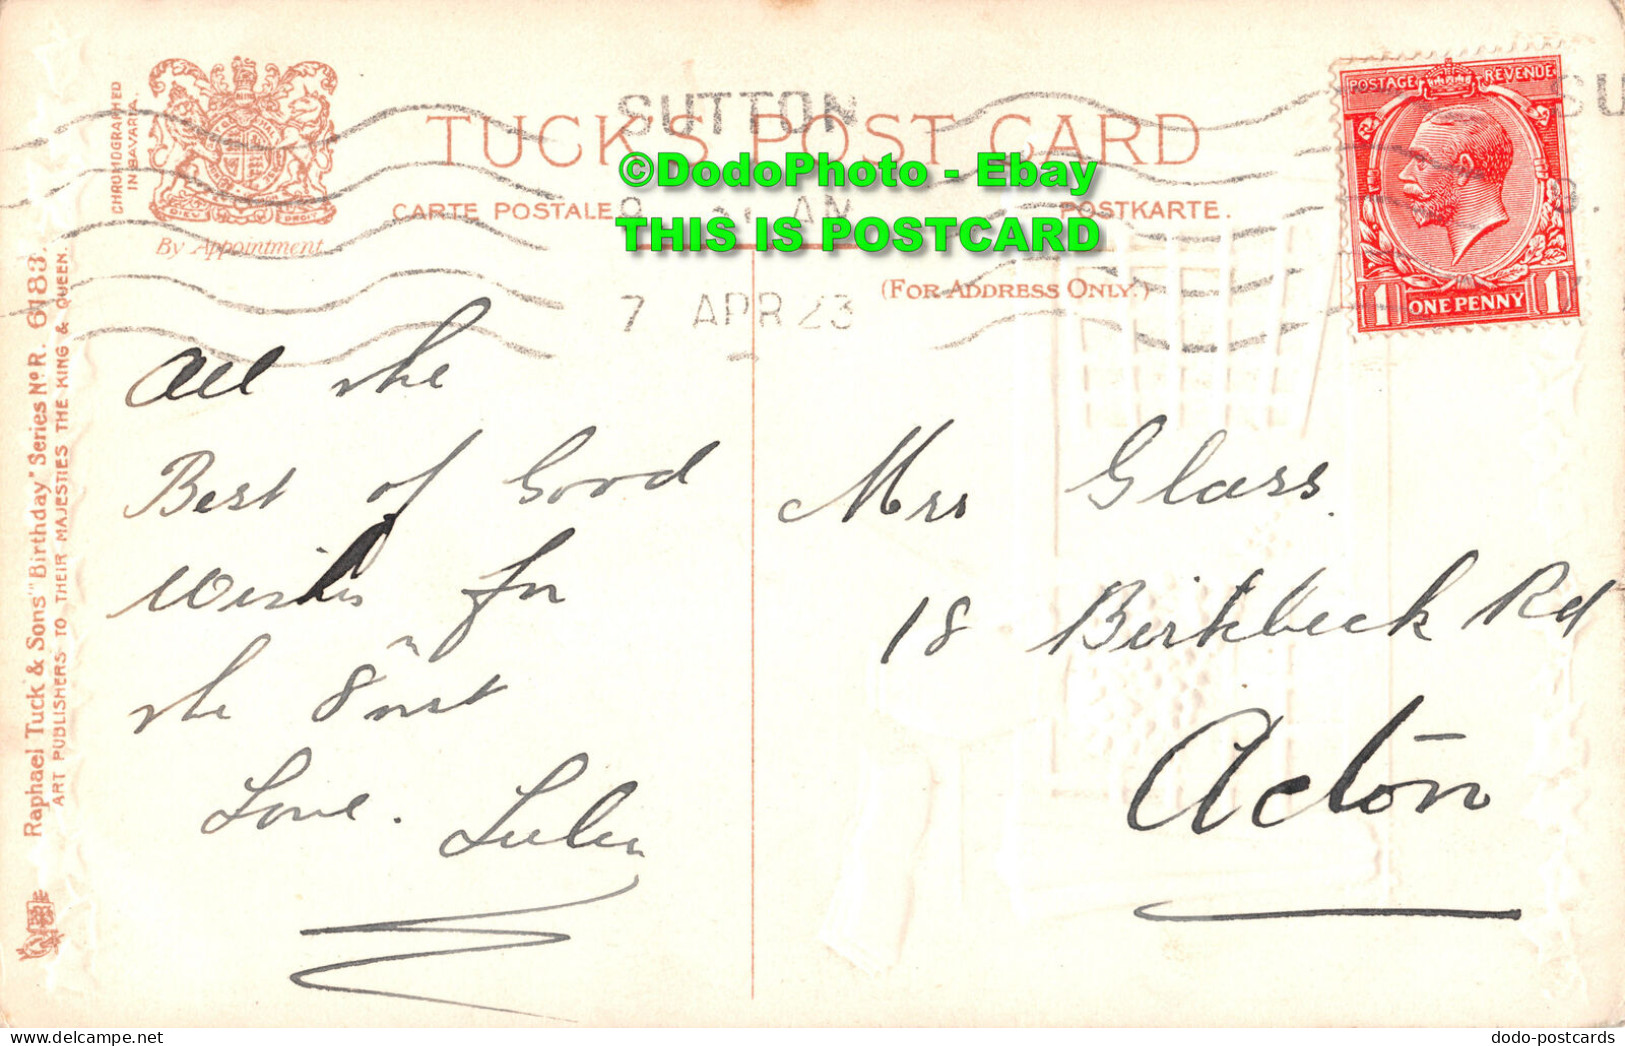 CHROMOGRAPHED
IN BAVARIA.
By Appointment
DIEU DROIT
TUCK'S POST CARD
CARTE POSTALE
POSTKARTE.
(FOR ADDRESS ONLY.)
SUTTON
AM
7 APR 23
SU
POSTAGE REVENUE
1 ONE PENNY 1
©DodoPhoto - Ebay
THIS IS POSTCARD
Raphael Tuck & Sons' "Birthday" Series No R. 6183.
ART PUBLISHERS TO THEIR MAJESTIES THE KING & QUEEN.
All the
Best of Good
Wishes for
the 8th inst
Love. Lulu
Mrs Glass.
18 Birkbeck Rd
Acton
dodo-postcards